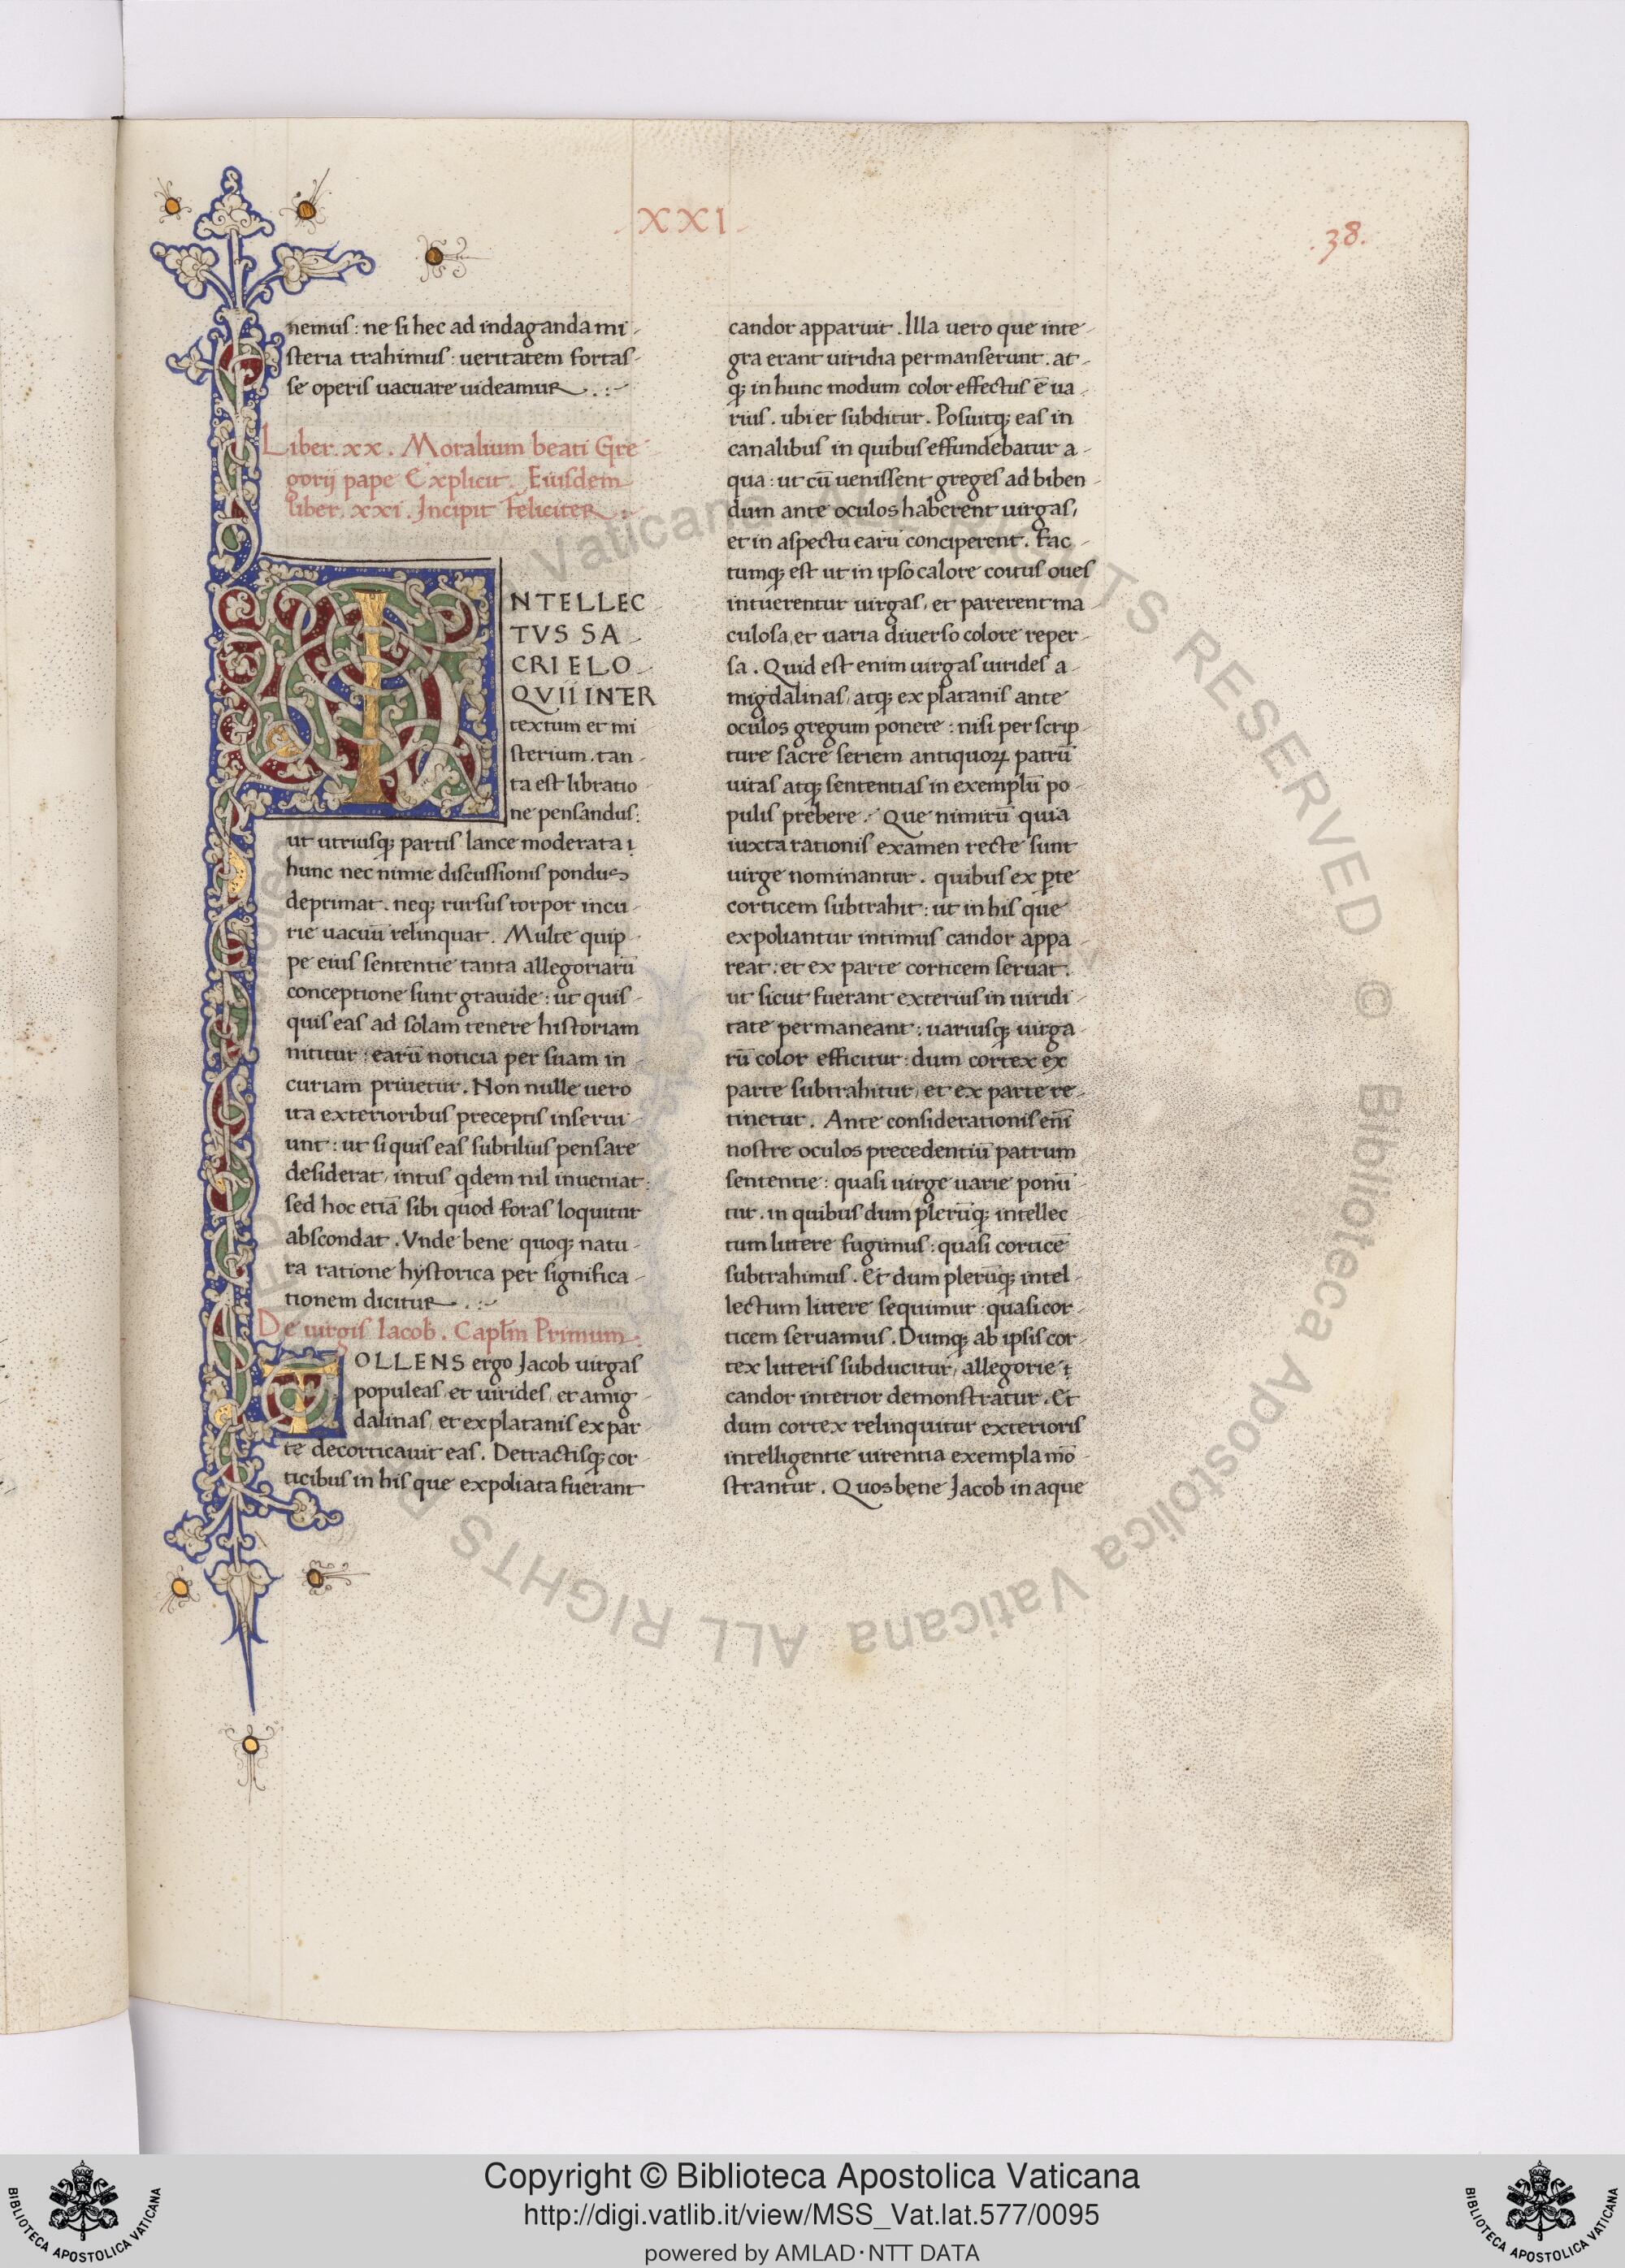 .XXI.
.38.
nemus : ne si hec ad indaganda mi-
steria trahimus : ueritatem fortas-
se operis uacuare uideamur . : ~
Liber . xx . Moralium beati Gre-
gorij pape Explicit . Eiusdem
liber . xxi . Incipit feliciter . :
INTELLEC
TVS SA-
CRI ELO-
QVII INTER
textum et mi
sterium . tan-
ta est libratio-
ne pensandus :
ut utriusq; partis lance moderata ;
hunc nec nimie discussionis pondus
deprimat . neq; rursus torpor incu-
rie uacuū relinquat . Multe quip-
pe eius sententie tanta allegoriarū
conceptione sunt grauide : ut quis-
quis eas ad solam tenere historiam
nititur : earū noticia per suam in-
curiam priuetur . Non nulle uero
ita exterioribus preceptis inserui-
unt : ut si quis eas subtilius pensare
desiderat , intus qdem nil inueniat :
sed hoc etiā sibi quod foras loquitur
abscondat . Vnde bene quoq; natu-
ra ratione hystorica per significa-
tionem dicitur . : ~
De uirgis Iacob . Caplm Primum .
TOLLENS ergo Jacob uirgas
populeas , et uirides , et amig-
dalinas , et explatanis ex par-
te decorticauit eas . Detractisq; cor-
ticibus in his que expoliata fuerant
candor apparuit . Illa uero que inte-
gra erant uiridia permanserunt . at-
q; in hunc modum color effectus ē ua-
rius . ubi et subditur . Posuitq; eas in
canalibus in quibus effundebatur a-
qua : ut cū uenissent greges ad biben-
dum ante oculos haberent uirgas ,
et in aspectu earū conciperent . Fac-
tumq; est ut in ipso calore coitus oues
intuerentur uirgas , et parerent ma-
culosa , et uaria diuerso colore reper-
sa . Quid est enim uirgas uirides a-
migdalinas , atq; ex platanis ante
oculos gregum ponere : nisi per scrip-
ture sacre seriem antiquoꝝ patrū
uitas atq; sententias in exemplū po-
pulis prebere . Que nimirū quia
iuxta rationis examen recte sunt
uirge nominantur . quibus ex ꝑte
corticem subtrahit : ut in his que
expoliantur intimus candor appa-
reat : et ex parte corticem seruat .
ut sicut fuerant exterius in uiridi-
tate permaneant : uariusq; uirga-
rū color efficitur : dum cortex ex
parte subtrahitur , et ex parte re-
tinetur . Ante considerationis enī
nostre oculos precedentiū patrum
sententie : quasi uirge uarie ponū-
tur . in quibus dum plerūq; intellec-
tum littere fugimus : quasi corticē
subtrahimus . Et dum plerūq; intel-
lectum littere sequimur : quasi cor-
ticem seruamus . Dumq; ab ipsis cor-
tex litteris subducitur , allegorie ;
candor interior demonstratur . Et
dum cortex relinquitur exterioris
intelligentie uirentia exempla mō-
strantur . Quos bene Jacob in aque
Copyright © Biblioteca Apostolica Vaticana
http://digi.vatlib.it/view/MSS_Vat.lat.577/0095
powered by AMLAD·NTT DATA
BIBLIOTECA APOSTOLICA VATICANA
BIBLIOTECA APOSTOLICA VATICANA
© Biblioteca Apostolica Vaticana ALL RIGHTS RESERVED